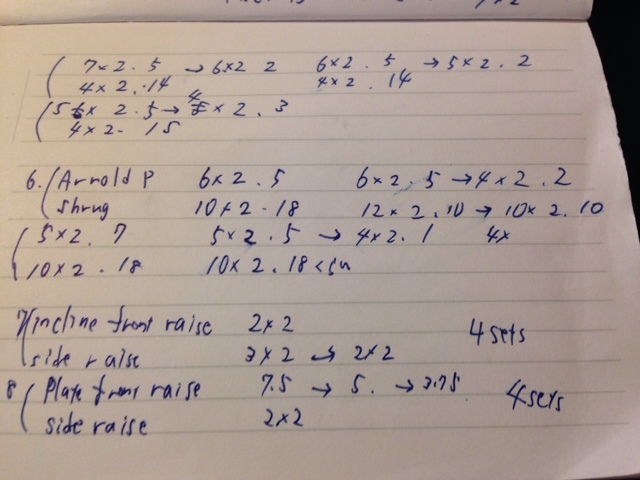 7×2.5 → 6×2 2 6×2.5 → 5×2.2
4×2.14 4×2.14
5 × 2.5 → 4 × 2.3
4×2- 15
6. Arnold P 6×2.5 6×2.5 → 4×2.2
Shrug 10×2-18 12×2.10 → 10×2.10
5×2.7 5×2.5 → 4×2.1 4×
10×2.18 10×2.18
7 incline front raise 2×2 4 sets
side raise 3×2 → 2×2
8 Plate front raise 7.5 → 5. → 3.75 4 sets
side raise 2×2